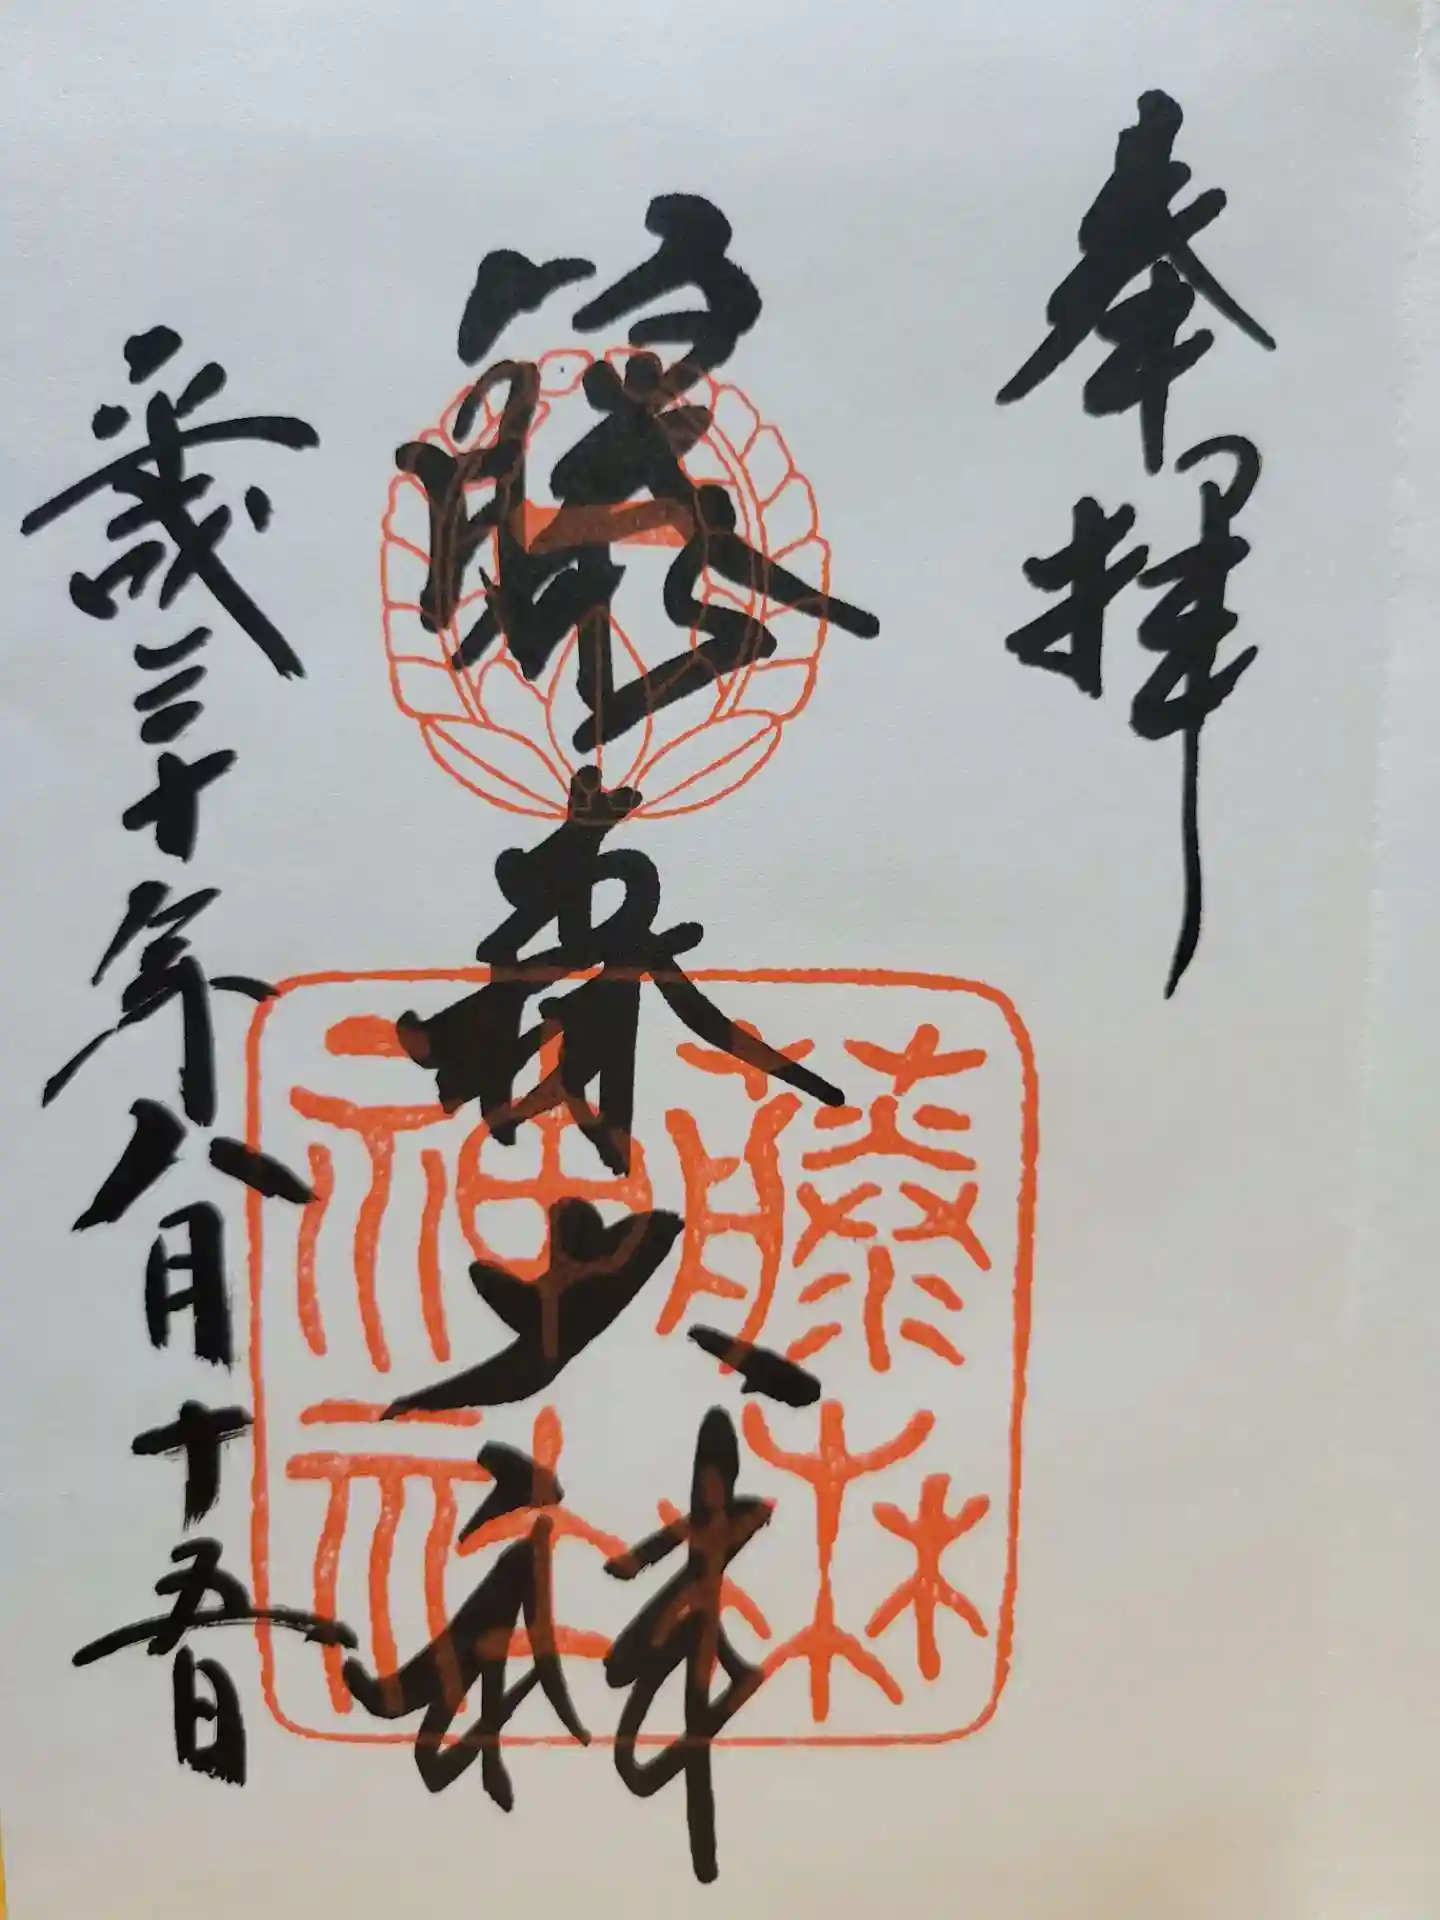 奉拝
藤森大神
藤森神社
平成三十年八月十五日